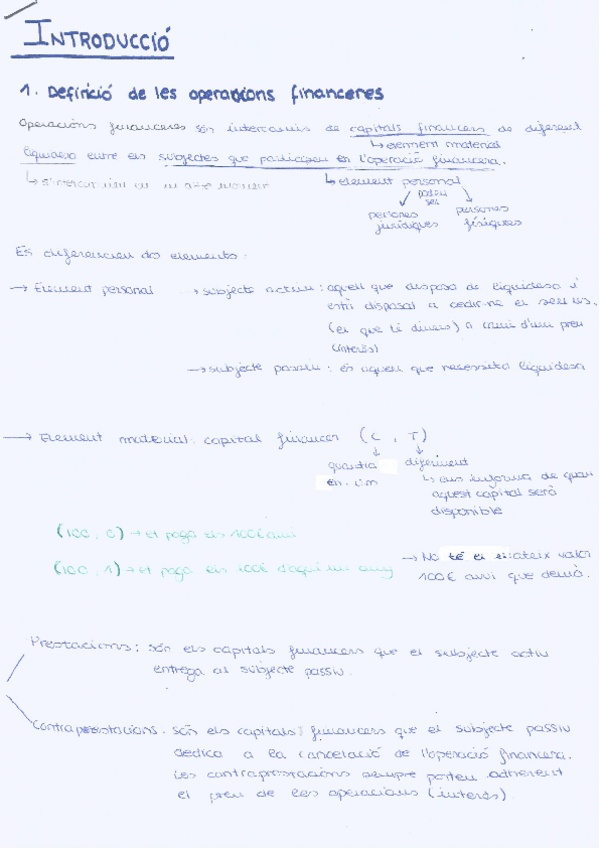 INTRODUCCIÓ
1. Definició de les operacions financeres
Operacions financeres són intercanvis de capitals financers de diferent
↳ element material
liquidesa entre els subjectes que participen en l'operació financera.
↳ s'intercanvien en un
↳ element personal
poden
ser
persones
jurídiques
persones
físiques
Es diferencien dos elements:
→ Element personal → subjecte actiu: aquell que disposa de liquidesa i
està disposat a cedir-ne
(el que té diners) a canvi d'un preu
(interés)
→ subjecte passiu: és aquell que necessita liquidesa
→ Element material: capital financer (C, T)
quantia
en u.m
diferiment
↳ ens informa de quan
aquest capital serà
disponible
(100, 0) → et paga els 100€ avui
(100, 1) → et paga els 100€ d'aquí un any
→ No té el mateix valor
100€ avui que demà.
Prestacions: són els capitals financers que el subjecte actiu
entrega al subjecte passiu.
Contraprestacions. Són els capitals financers que el subjecte passiu
dedica a la cancelació de l'operació financera.
Les contraprestacions sempre porten adherent
el preu de les operacions (interés)